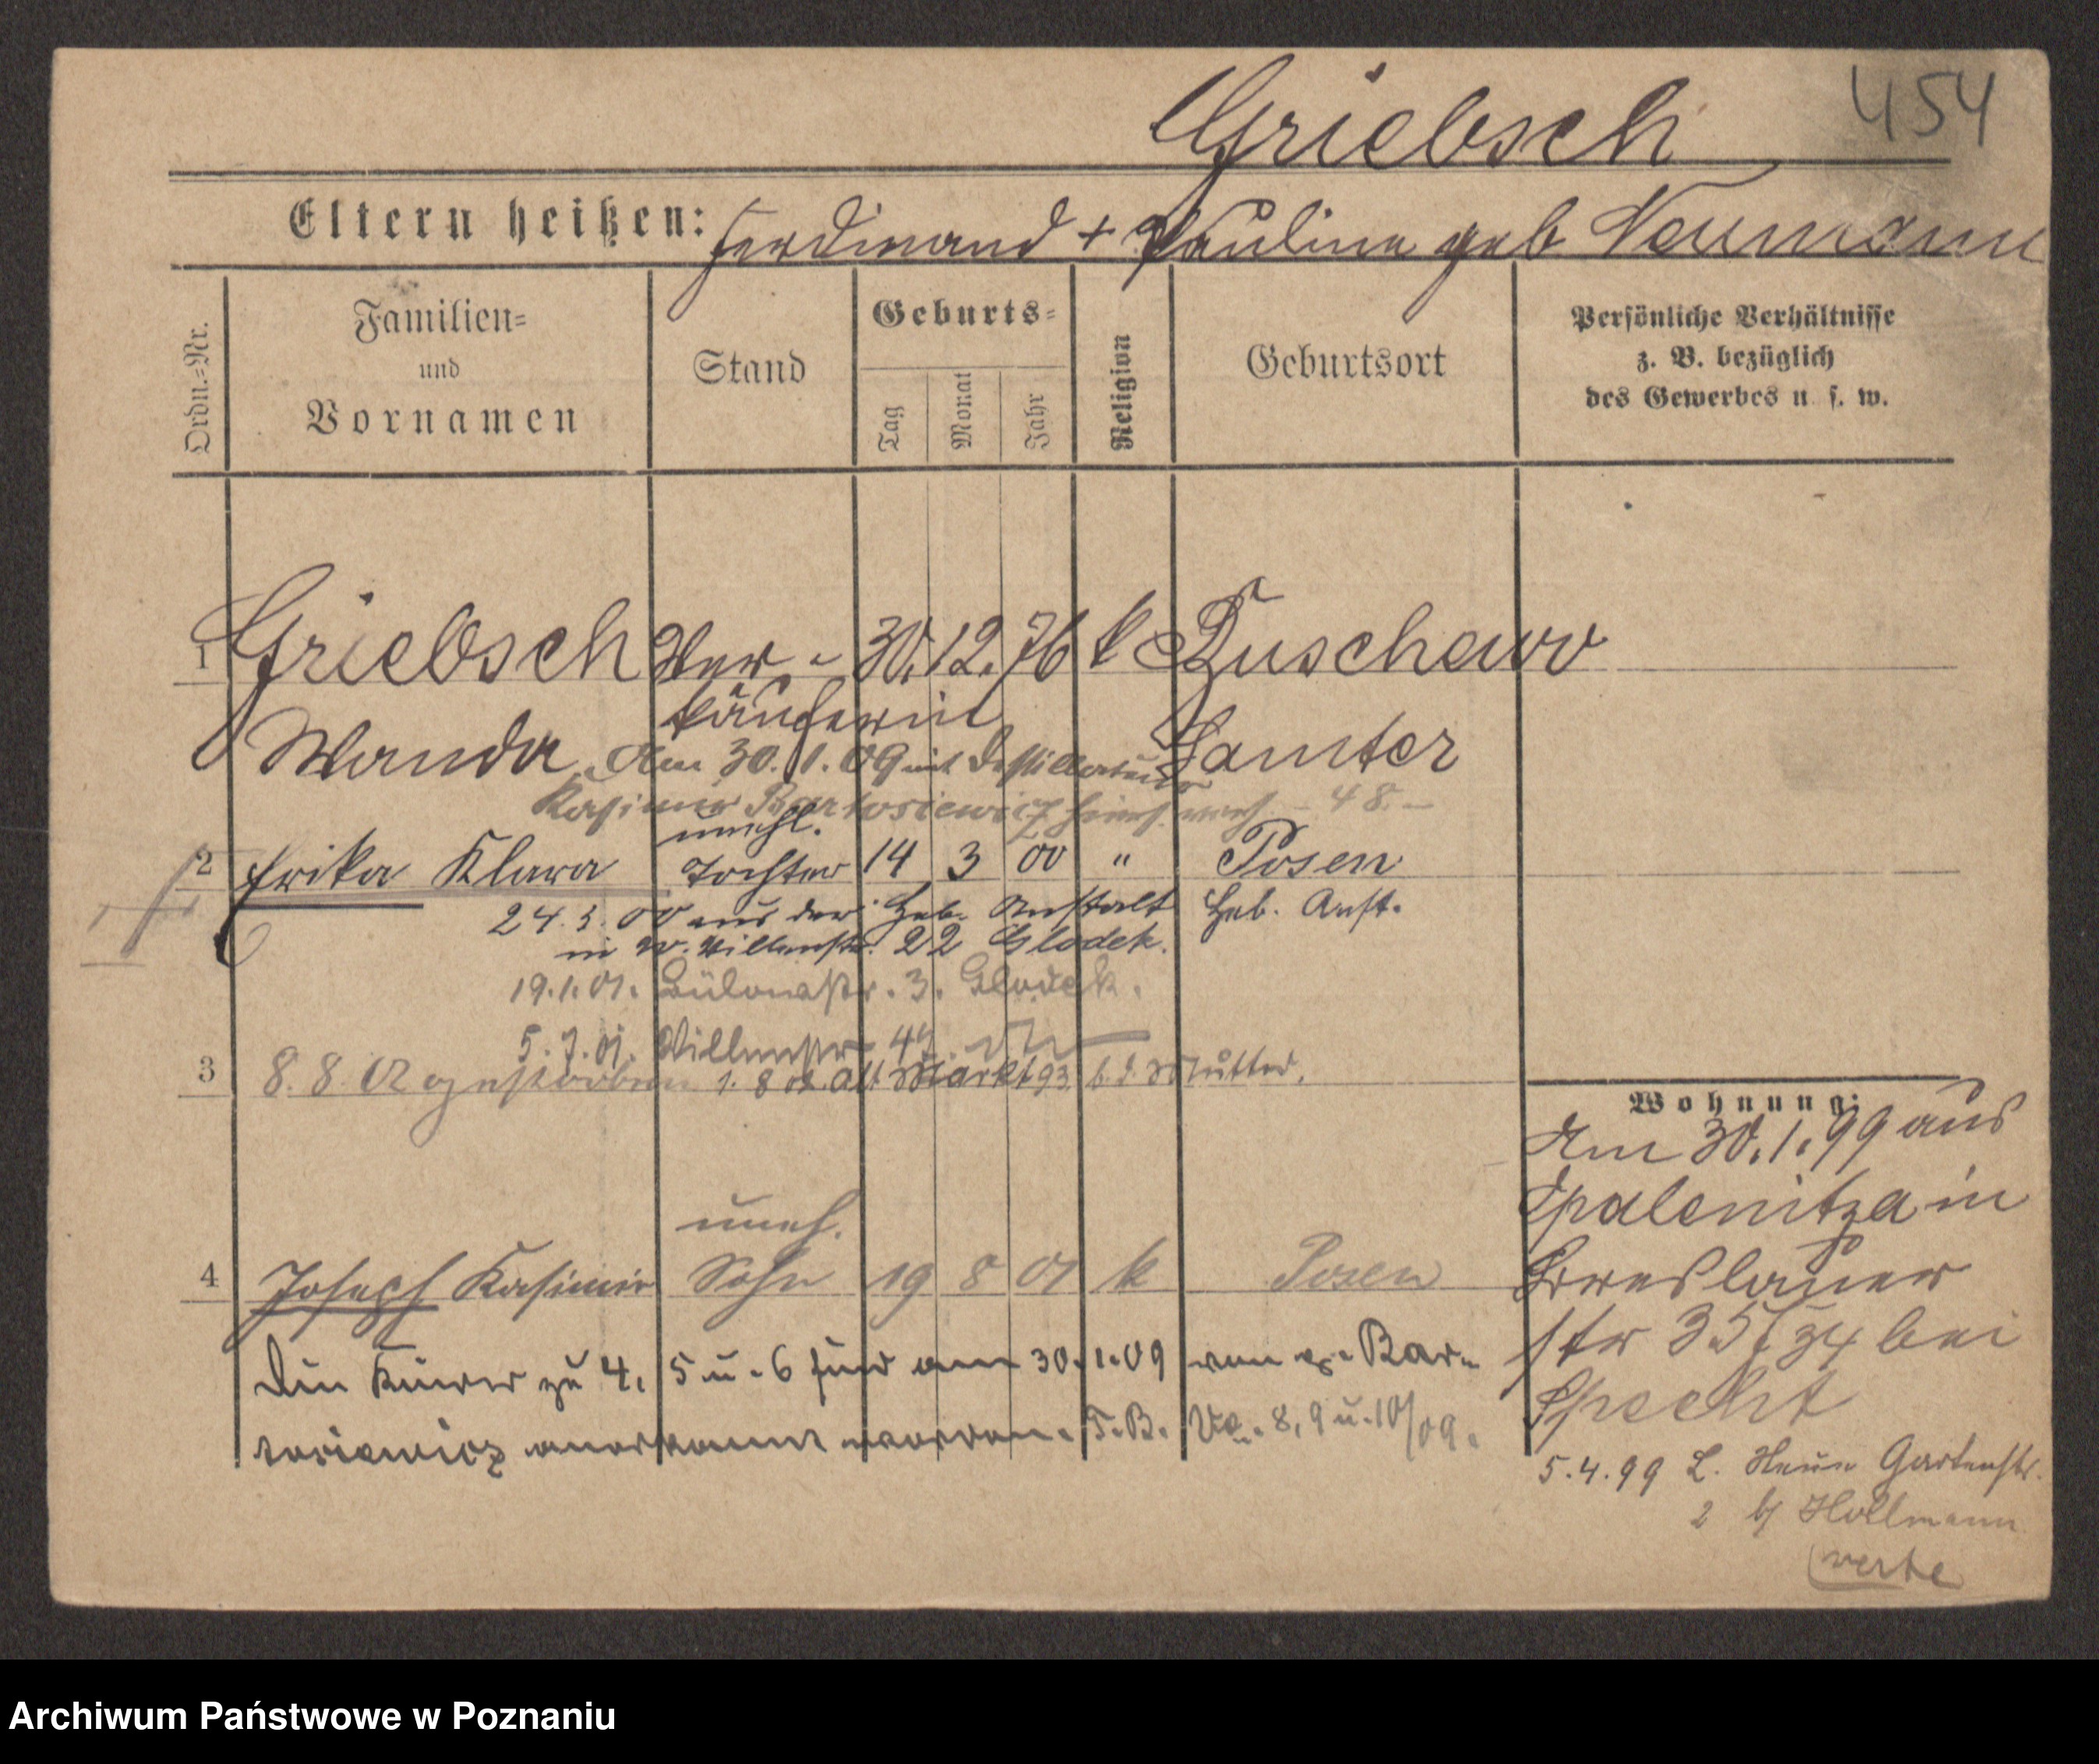 Griebsch 454
Eltern heißen: Ferdinand + Pauline geb Neumann
Ordn.=Nr.
Familien=
und
Vornamen
Stand
Geburts=
Tag
Monat
Jahr
Religion
Geburtsort
Persönliche Verhältnisse
z. B. bezüglich
des Gewerbes u. s. w.
1 Griebsch Ver- 30. 12. 76 k Duschewo
käuferin
Wanda Samter
Am 30. 1. 09 mit Destillateur
Kasimir Bartosiewicz 48.
unehl.
2 Erika Klara Tochter 14 3 00 " Posen
24.3.00 aus der Geb. Anstalt Geb. Anst.
in W. 22 Glodek.
19.1.01. Bülowstr. 3. Glodek.
5.7.01.
3 8.8.02 gestorben 1.8.02 Alt Markt 93 b. d. Mutter.
Wohnung:
Am 30.1.99 aus
Opalenitza in
Breslauer
str 35/34 bei
Specht
5.4.99 Gartenstr.
2 b/ Hollmann
verte
uneh.
4 Joseph Kasimir Sohn 19 8 01 k Posen
Die Kinder zu 4, 5 u. 6 sind am 30.1.09 von Bar-
tosiewicz anerkannt worden. T.B. No. 8, 9 u. 10/09.
Archiwum Państwowe w Poznaniu